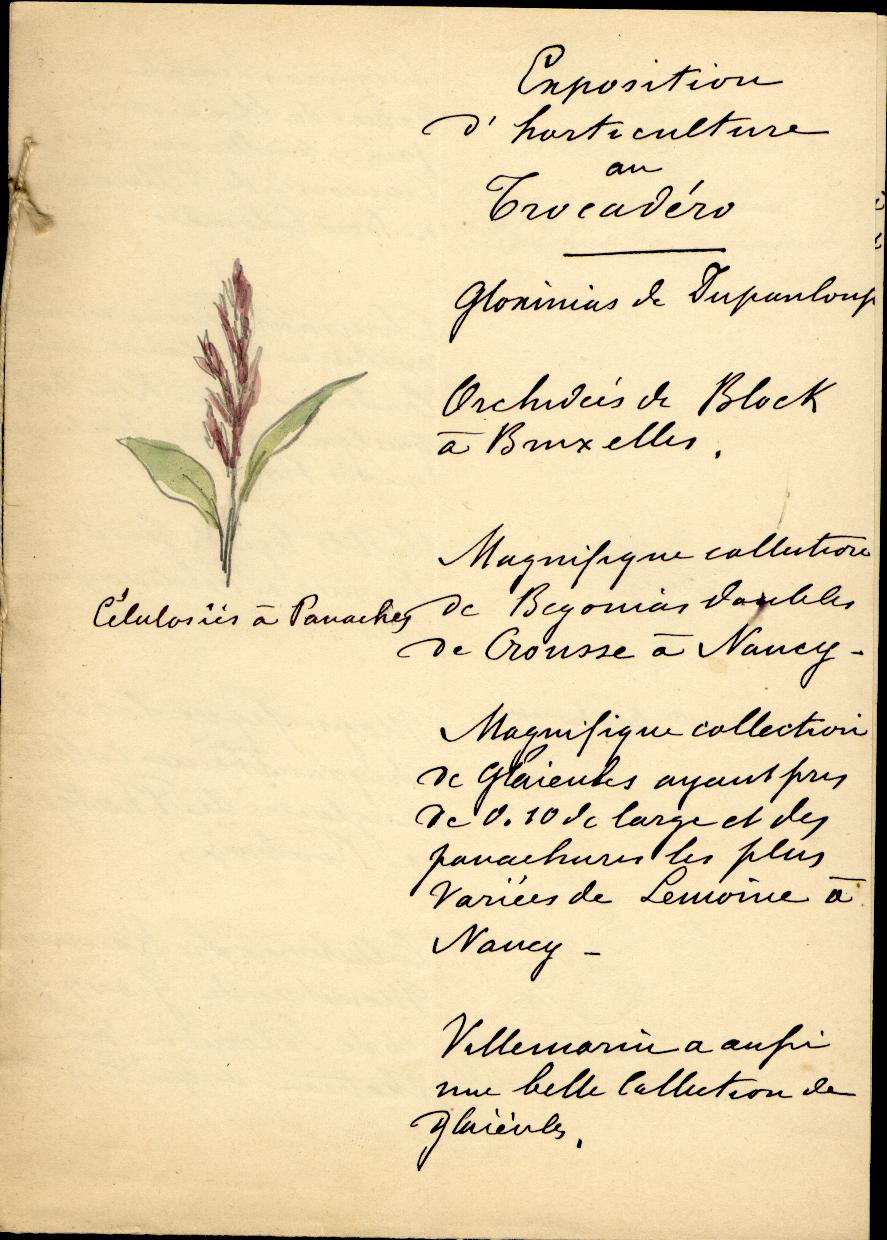 Exposition
d'horticulture
au
Trocadéro
Gloxinias de Dupanloup
Orchidées de Block
à Bruxelles.
Magnifique collection
de Begonias doubles
de Crousse à Nancy -
Magnifique collection
de Glaieuls ayant près
de 0.10 de large et des
panachures les plus
variées de Lemoine à
Nancy -
Villemorin a aussi
une belle collection de
glaiëuls.
Célulosiés à Panaches